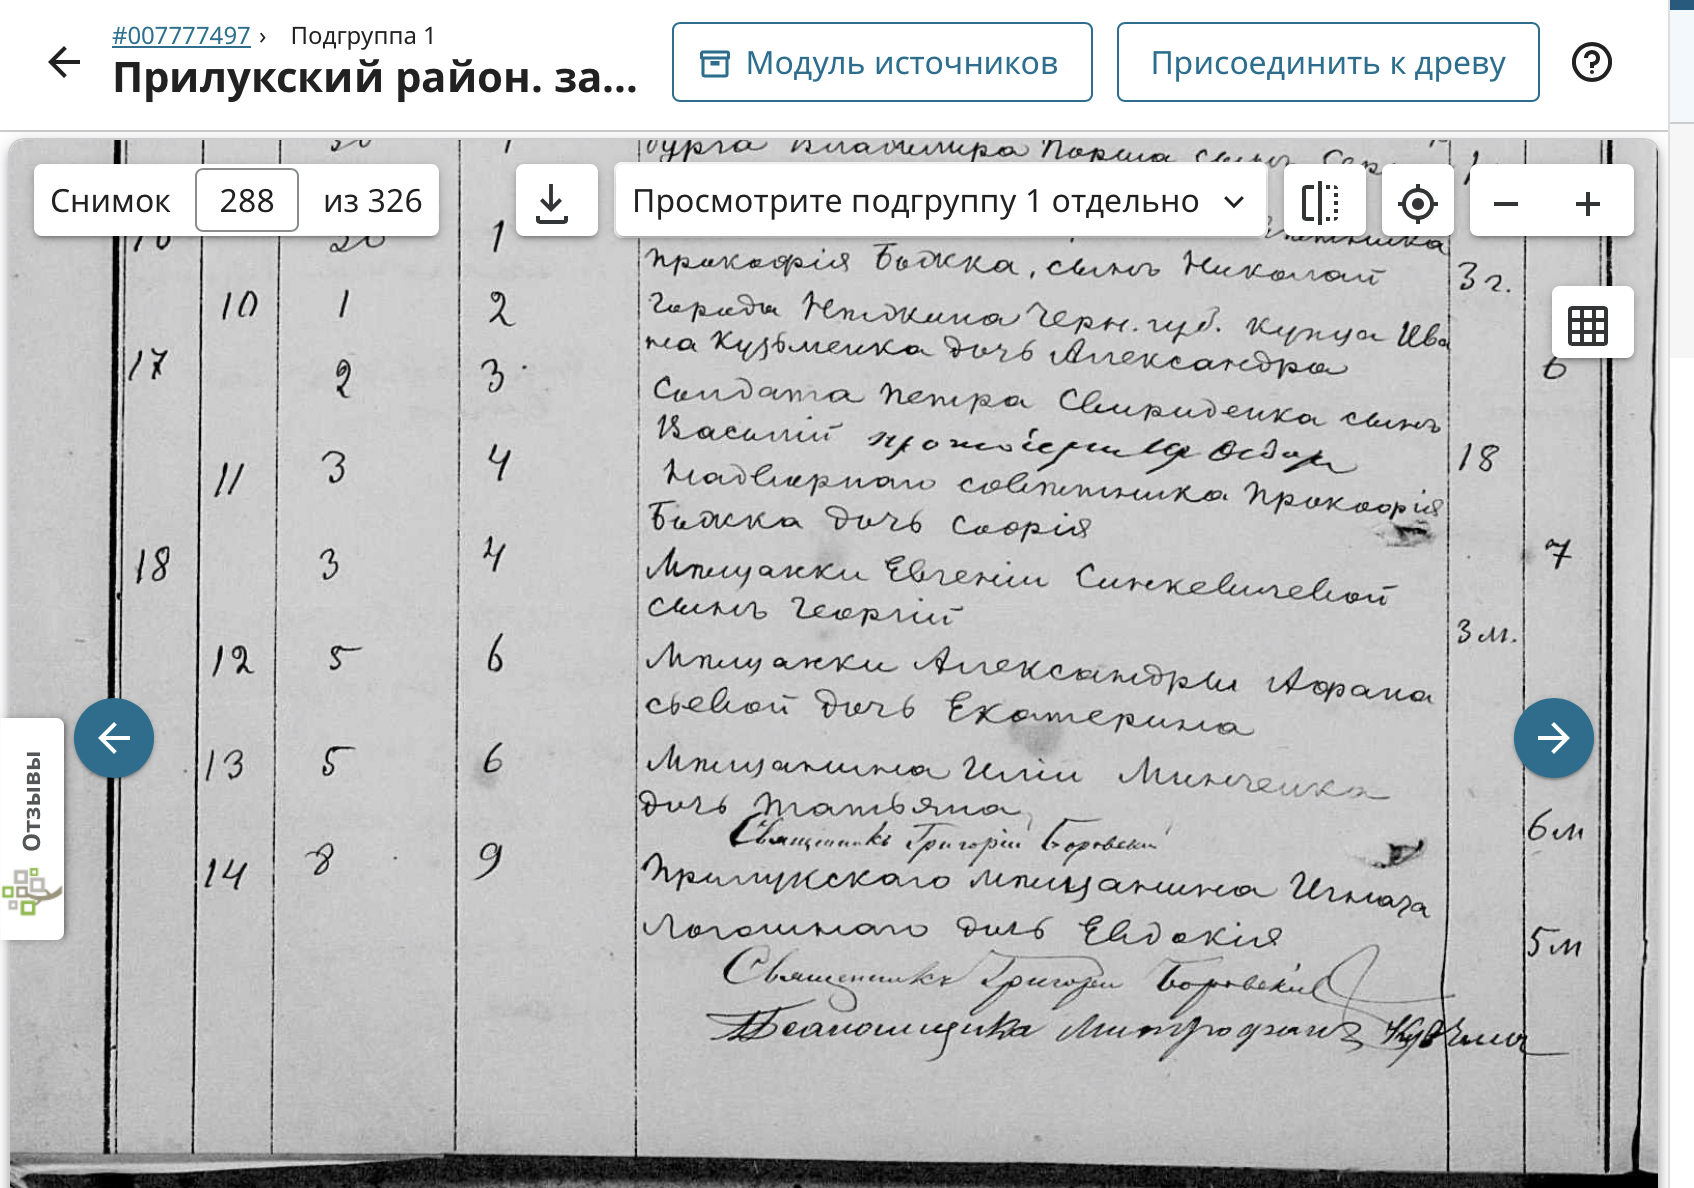 #007777497 › Подгруппа 1
Прилукский район. за...
Модуль источников
Присоединить к древу
Снимок 288 из 326
Просмотрите подгруппу 1 отдельно
Отзывы
бурга Владимира сынъ
1
Прокофія Божка, сынъ Николай
3 г.
10 1 2 Города Нѣжина Черн. губ. купца Ива
на Кузьменка дочь Александра
6
17 2 3 Солдата Петра Свириденка сынъ
Василій
18
11 3 4 Надворнаго совѣтника Прокофія
Божка дочь Софія
7
18 3 4 Мѣщанки Евгеніи Синкевичевой
сынъ Георгій
3 м.
12 5 6 Мѣщанки Александры Афана
сьевой дочь Екатерина
13 5 6 Мѣщанина Иліи Минченка
дочь Татьяна
6 м
Священникъ Григорій Боровскій
14 8 9 Прилукскаго мѣщанина Игната
дочь Евдокія
5 м
Священникъ Григорій Боровскій
Псаломщикъ Митрофанъ